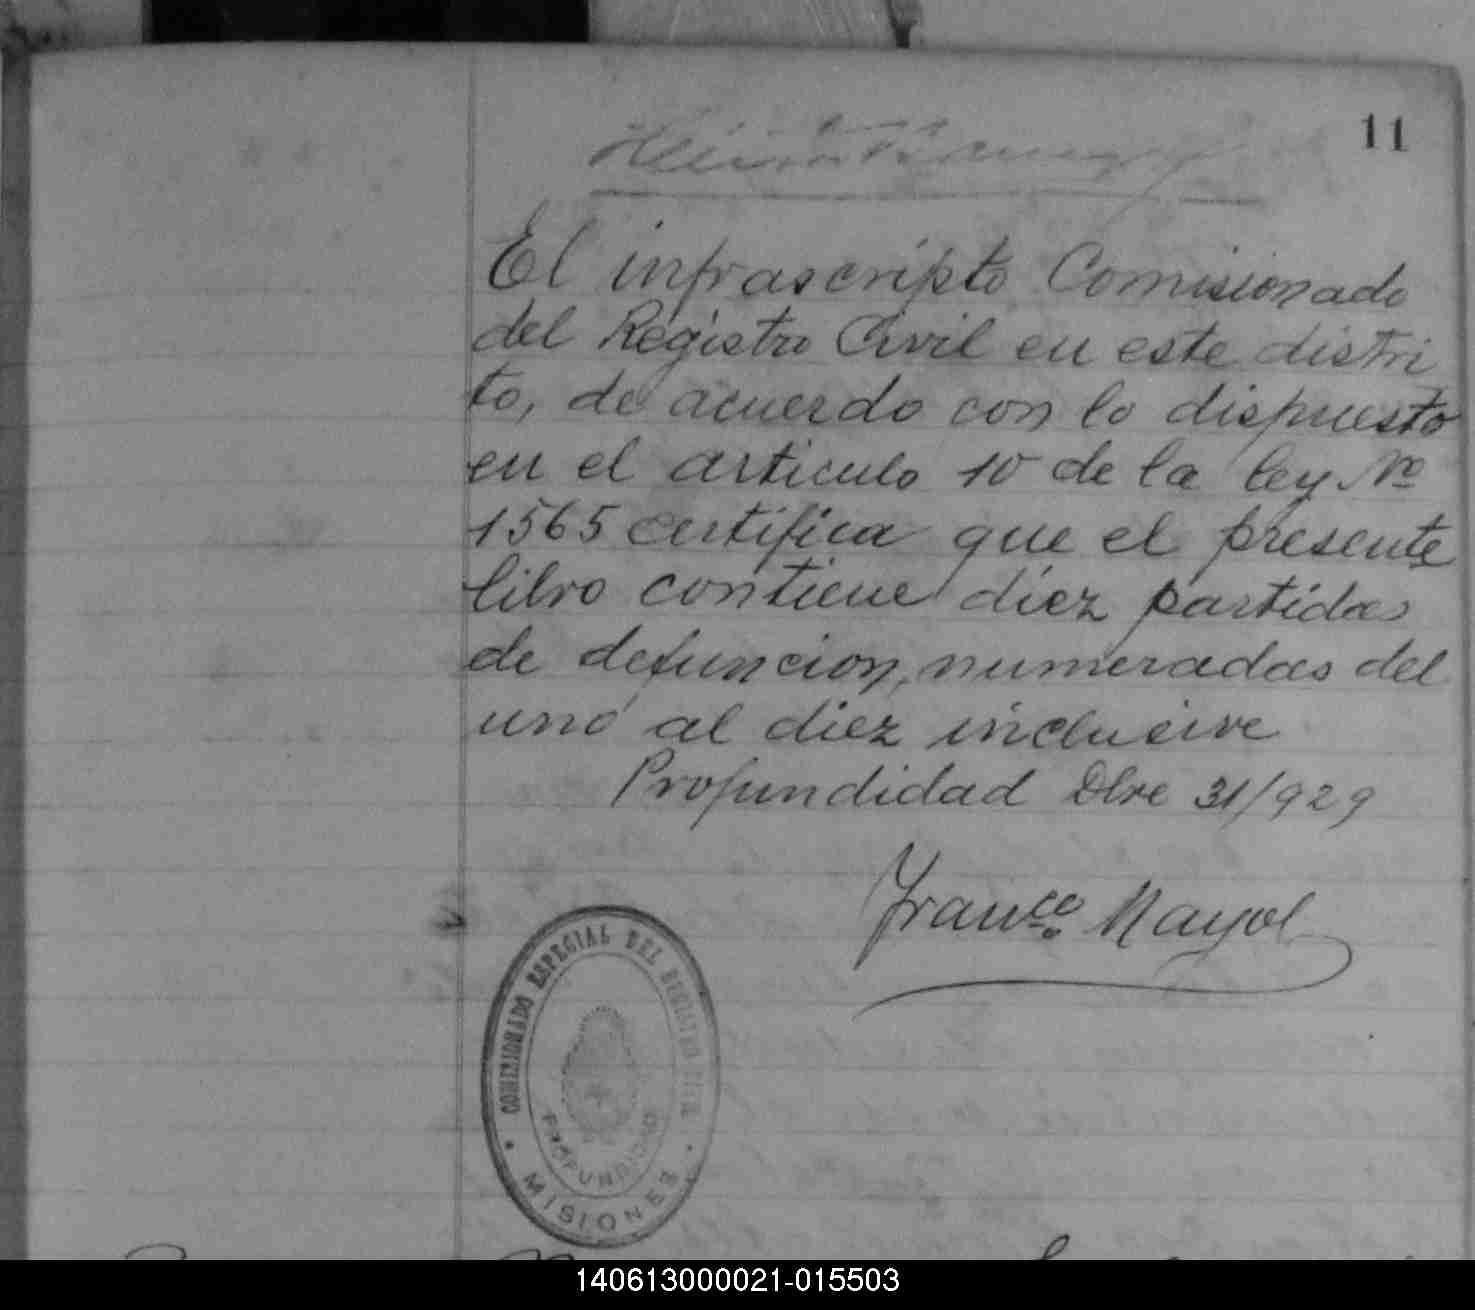 11
El infrascripto Comisionado
del Registro Civil en este distri
to, de acuerdo con lo dispuesto
en el articulo 10 de la ley Nº
1565 certifica que el presente
libro contiene diez partidas
de defuncion, numeradas del
uno al diez inclusive
Profundidad Dbre 31/929
Franco. Mayol
COMISIONADO ESPECIAL DEL REGISTRO CIVIL
PROFUNDIDAD
MISIONES
140613000021-015503